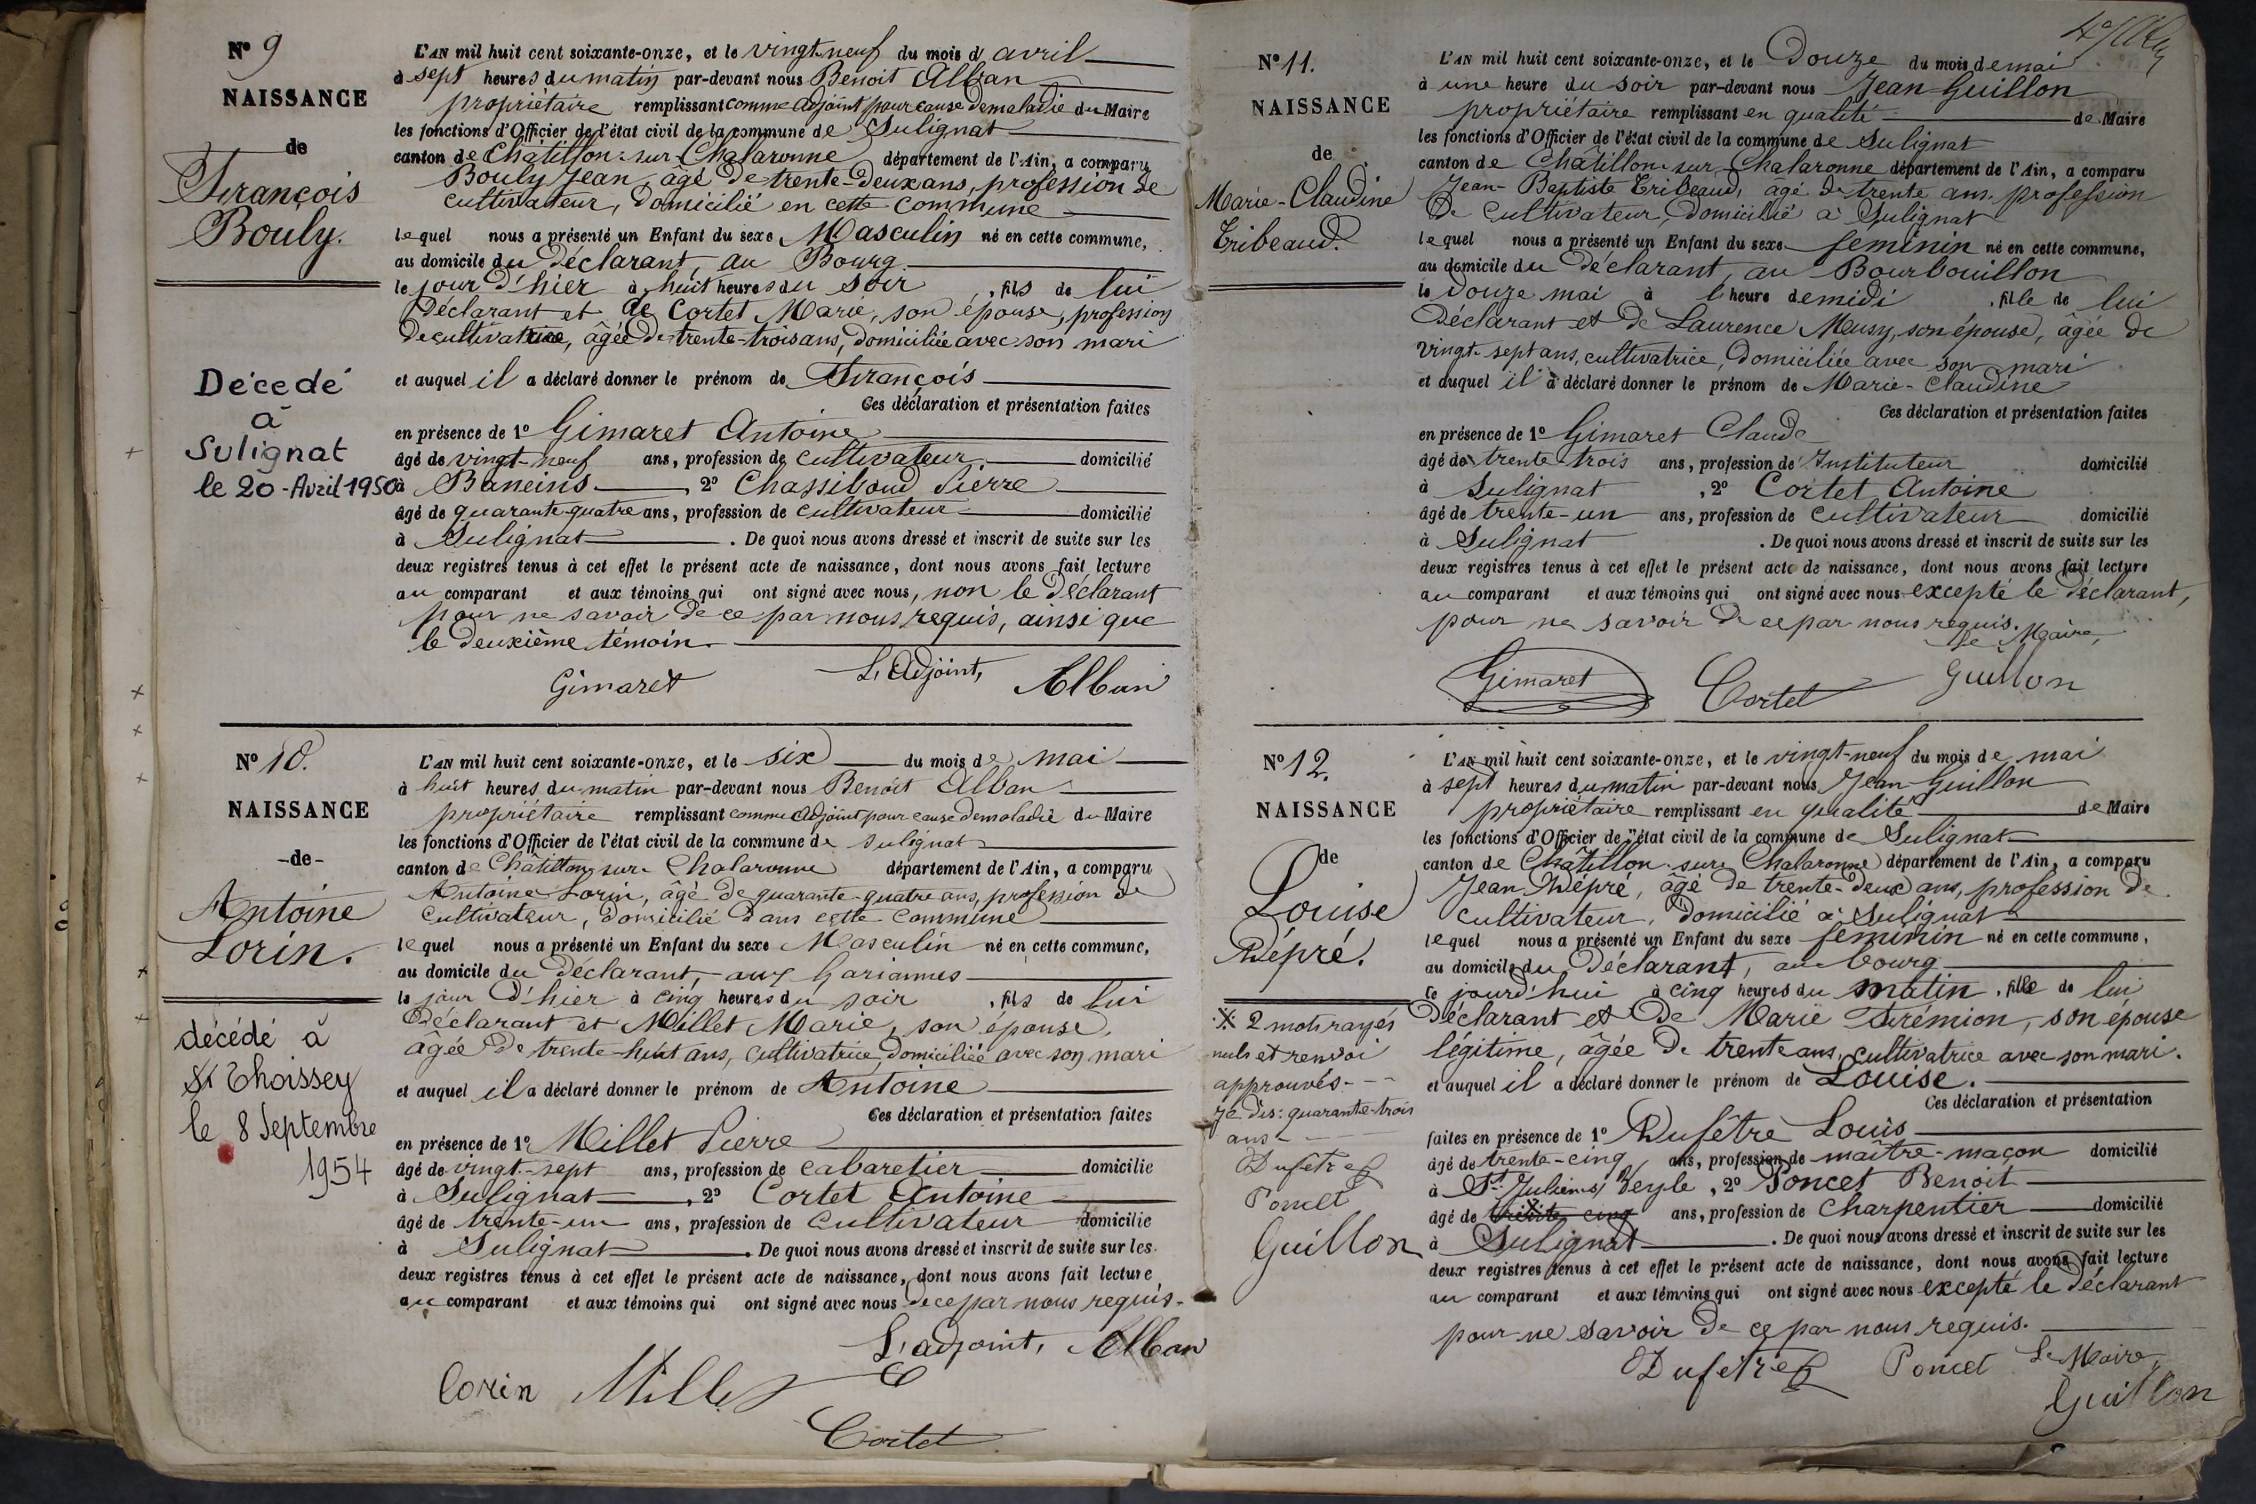 N° 9
NAISSANCE
de
François
Bouly.
Décedé
à
Sulignat
le 20 - Avril 1950
L'AN mil huit cent soixante-onze, et le vingt-neuf du mois d'avril
à sept heures du matin par-devant nous Benoit Alban
propriétaire remplissant comme adjoint pour cause de maladie du Maire
les fonctions d'Officier de l'état civil de la commune de Sulignat
canton de Châtillon-sur-Chalaronne département de l'Ain, a comparu
Bouly Jean, âgé de trente-deux ans, profession de
cultivateur, domicilié en cette commune
lequel nous a présenté un Enfant du sexe Masculin né en cette commune,
au domicile du déclarant, au Bourg
le jour d'hier à huit heures du soir, fils de lui
déclarant et de Cortet Marie, son épouse, profession
de cultivatrice, âgée de trente-trois ans, domiciliée avec son mari
et auquel il a déclaré donner le prénom de François
Ces déclaration et présentation faites
en présence de 1° Gimaret Antoine
âgé de vingt-neuf ans, profession de cultivateur domicilié
à Baneins, 2° Chassiboud Pierre
âgé de quarante-quatre ans, profession de cultivateur domicilié
à Sulignat. De quoi nous avons dressé et inscrit de suite sur les
deux registres tenus à cet effet le présent acte de naissance, dont nous avons fait lecture
au comparant et aux témoins qui ont signé avec nous, non le déclarant
pour ne savoir de ce par nous requis, ainsi que
le deuxième témoin.
Gimaret L'Adjoint, Alban
N° 10.
NAISSANCE
-de-
Antoine
Lorin.
décédé à
St Thoissey
le 8 Septembre
1954
L'AN mil huit cent soixante-onze, et le six du mois de mai
à huit heures du matin par-devant nous Benoit Alban
propriétaire remplissant comme adjoint pour cause de maladie du Maire
les fonctions d'Officier de l'état civil de la commune de Sulignat
canton de Châtillon sur Chalaronne département de l'Ain, a comparu
Antoine Lorin, âgé de quarante-quatre ans, profession de
cultivateur, domicilié dans cette commune
lequel nous a présenté un Enfant du sexe Masculin né en cette commune,
au domicile du déclarant, aux
le jour d'hier à cinq heures du soir, fils de lui
déclarant et Millet Marie, son épouse,
âgée de trente-huit ans, cultivatrice, domiciliée avec son mari
et auquel il a déclaré donner le prénom de Antoine
Ces déclaration et présentation faites
en présence de 1° Millet Pierre
âgé de vingt-sept ans, profession de cabaretier domicilié
à Sulignat, 2° Cortet Antoine
âgé de trente-un ans, profession de cultivateur domicilié
à Sulignat. De quoi nous avons dressé et inscrit de suite sur les
deux registres tenus à cet effet le présent acte de naissance, dont nous avons fait lecture
au comparant et aux témoins qui ont signé avec nous de ce par nous requis.
L'adjoint, Alban
Lorin Millet
Cortet
N° 11.
NAISSANCE
de
Marie-Claudine
Tribeaud.
L'AN mil huit cent soixante-onze, et le Douze du mois de mai
à une heure du soir par-devant nous Jean Guillon
propriétaire remplissant en qualité de Maire
les fonctions d'Officier de l'état civil de la commune de Sulignat
canton de Châtillon-sur-Chalaronne département de l'Ain, a comparu
Jean-Baptiste Tribeaud, âgé de trente ans, profession
de cultivateur, domicilié à Sulignat
lequel nous a présenté un Enfant du sexe feminin né en cette commune,
au domicile du déclarant, au Bourbouillon
le Douze mai à l'heure de midi, fille de lui
déclarant et de Laurence Meusy, son épouse, âgée de
vingt-sept ans, cultivatrice, domiciliée avec son mari
et auquel il a déclaré donner le prénom de Marie-Claudine
Ces déclaration et présentation faites
en présence de 1° Gimaret Claude
âgé de trente-trois ans, profession de Instituteur domicilié
à Sulignat, 2° Cortet Antoine
âgé de trente-un ans, profession de cultivateur domicilié
à Sulignat. De quoi nous avons dressé et inscrit de suite sur les
deux registres tenus à cet effet le présent acte de naissance, dont nous avons fait lecture
au comparant et aux témoins qui ont signé avec nous excepté le déclarant,
pour ne savoir de ce par nous requis.
Le Maire,
Gimaret Cortet Guillon
N° 12.
NAISSANCE
de
Louise
Dépré.
※ 2 mots rayés
nuls et renvoi
approuvés - -
Je dis: quarante-trois
ans -
Dufetre
Poncet
Guillon
L'AN mil huit cent soixante-onze, et le vingt-neuf du mois de mai
à sept heures du matin par-devant nous Jean Guillon
propriétaire remplissant en qualité de Maire
les fonctions d'Officier de l'état civil de la commune de Sulignat
canton de Châtillon-sur-Chalaronne département de l'Ain, a comparu
Jean Dépré, âgé de trente-deux ans, profession de
cultivateur, domicilié à Sulignat
lequel nous a présenté un Enfant du sexe feminin né en cette commune,
au domicile du déclarant, au bourg
ce jourd'hui à cinq heures du matin, fille de lui
déclarant et de Marie Frémion, son épouse
légitime, âgée de trente ans, cultivatrice avec son mari.
et auquel il a déclaré donner le prénom de Louise.
Ces déclaration et présentation
faites en présence de 1° Dufêtre Louis
âgé de trente-cinq ans, profession de maître-maçon domicilié
à St Julien s/ Veyle, 2° Poncet Benoit
âgé de trente cinq ans, profession de charpentier domicilié
à Sulignat. De quoi nous avons dressé et inscrit de suite sur les
deux registres tenus à cet effet le présent acte de naissance, dont nous avons fait lecture
au comparant et aux témoins qui ont signé avec nous excepté le déclarant
pour ne savoir de ce par nous requis.
Dufetre Poncet Le Maire,
Guillon